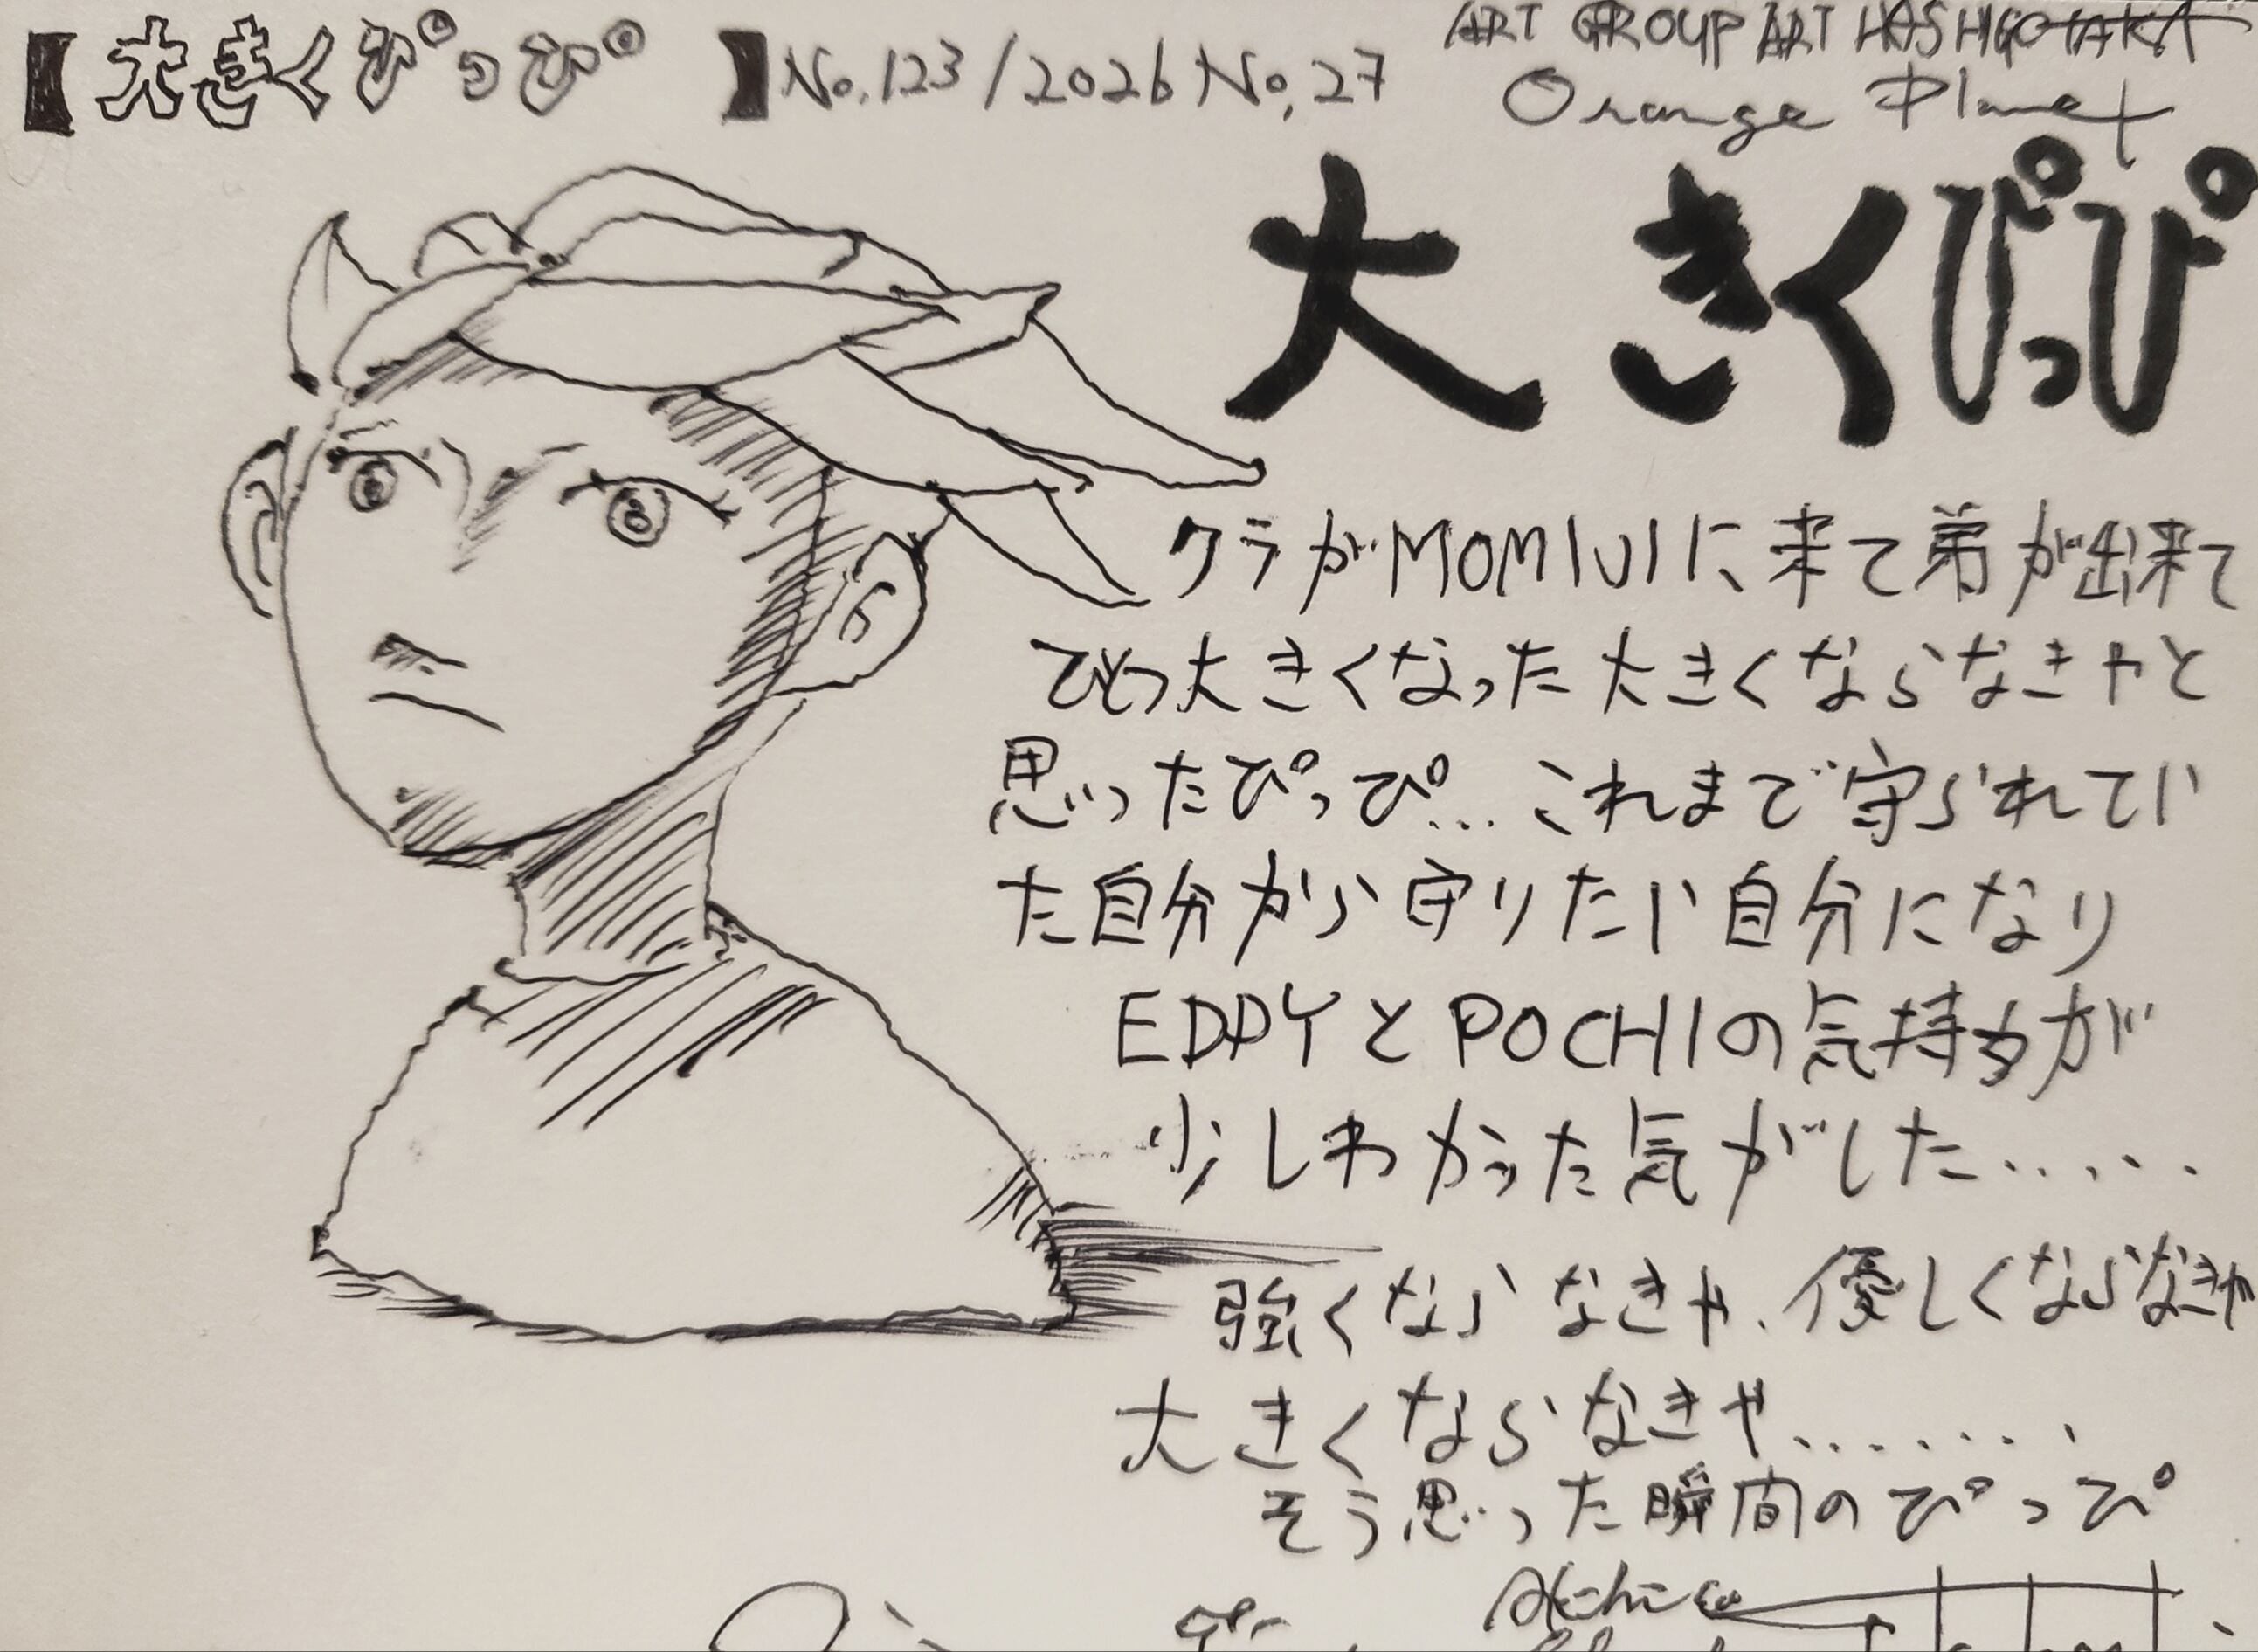 【大きくぴっぴ】No.123/2026 No.27
ART GROUP ART HASHIGOTAKA
Orange Planet
大きくぴっぴ
クラがMOMIJIに来て弟が出来て
ひとつ大きくなった大きくならなきゃと
思ったぴっぴ...これまで守られてい
た自分から守りたい自分になり
EDDYとPOCHIの気持ちが
少しわかった気がした.....
強くならなきゃ.優しくならなきゃ
大きくならなきゃ........
そう思った瞬間のぴっぴ